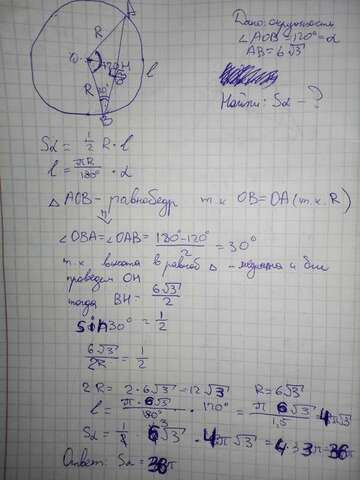 Дано: окружность
∠AOB = 120° = α
AB = 6√3
Найти: Sα - ?
A
R
O
120°
H
R
l
B
Sα = 1/2 R · l
l = πR/180° · α
△ AOB - равнобедр т.к OB=OA (т.к. R)
⇓
∠OBA = ∠OAB = 180°-120°/2 = 30°
т.к высота в равноб △ - медиана и бис
проведем OH
тогда BH = 6√3/2
sin30° = 1/2
6√3/2R = 1/2
2R = 2·6√3 = 12√3 R = 6√3
l = π·6√3/180° · 120° = π 6√3/1,5 = 4π√3
Sα = 1/2 · 6√3 · 4π√3 = 4·3·3π = 36π
Ответ: Sα = 36π